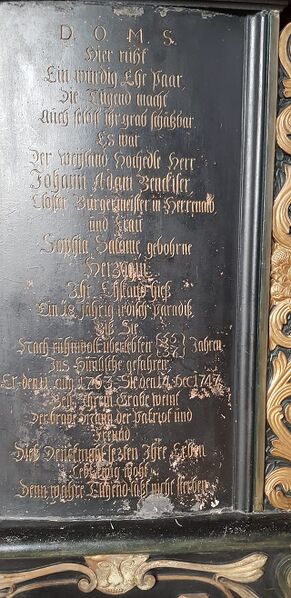 D. O. M. S.
Hier ruht
Ein würdig Ehr Paar
Die Tugend macht
Auch selbst ihr grab schätzbar
Es war
Der weyland Hochedle Herr
Johann Adam Benckiser
Closter Burgermeister in Herrnalb
und Frau
Sophia Salome gebohrne
Ihr Ehstand hieß
Ein 18 jährig irdisch paradiß
Biß Sie
Nach ruhmvoll überlebten Jahren
Ins Himlische gefahren
Er den 11 aug 1763 Sie den 14 Dec 1747
Bey Ihrem Grabe weint
der Patriot und
Freund
Diß Denckmahl sezten Ihre Erben
Denn wahre Tugend läßt nicht sterben